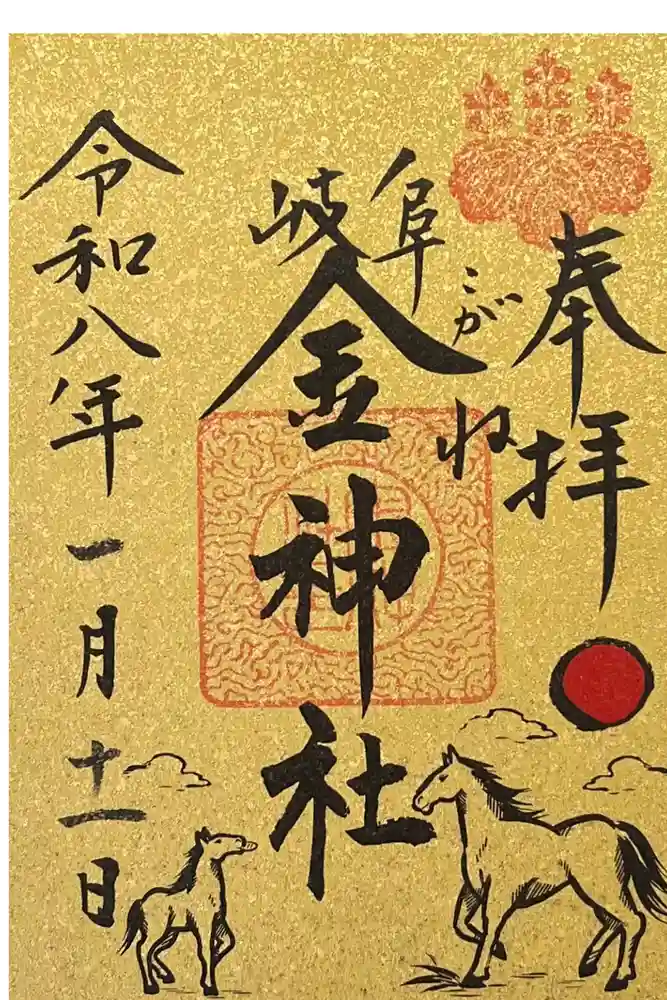 奉拝
こがね
岐阜
金神社
令和八年一月十一日